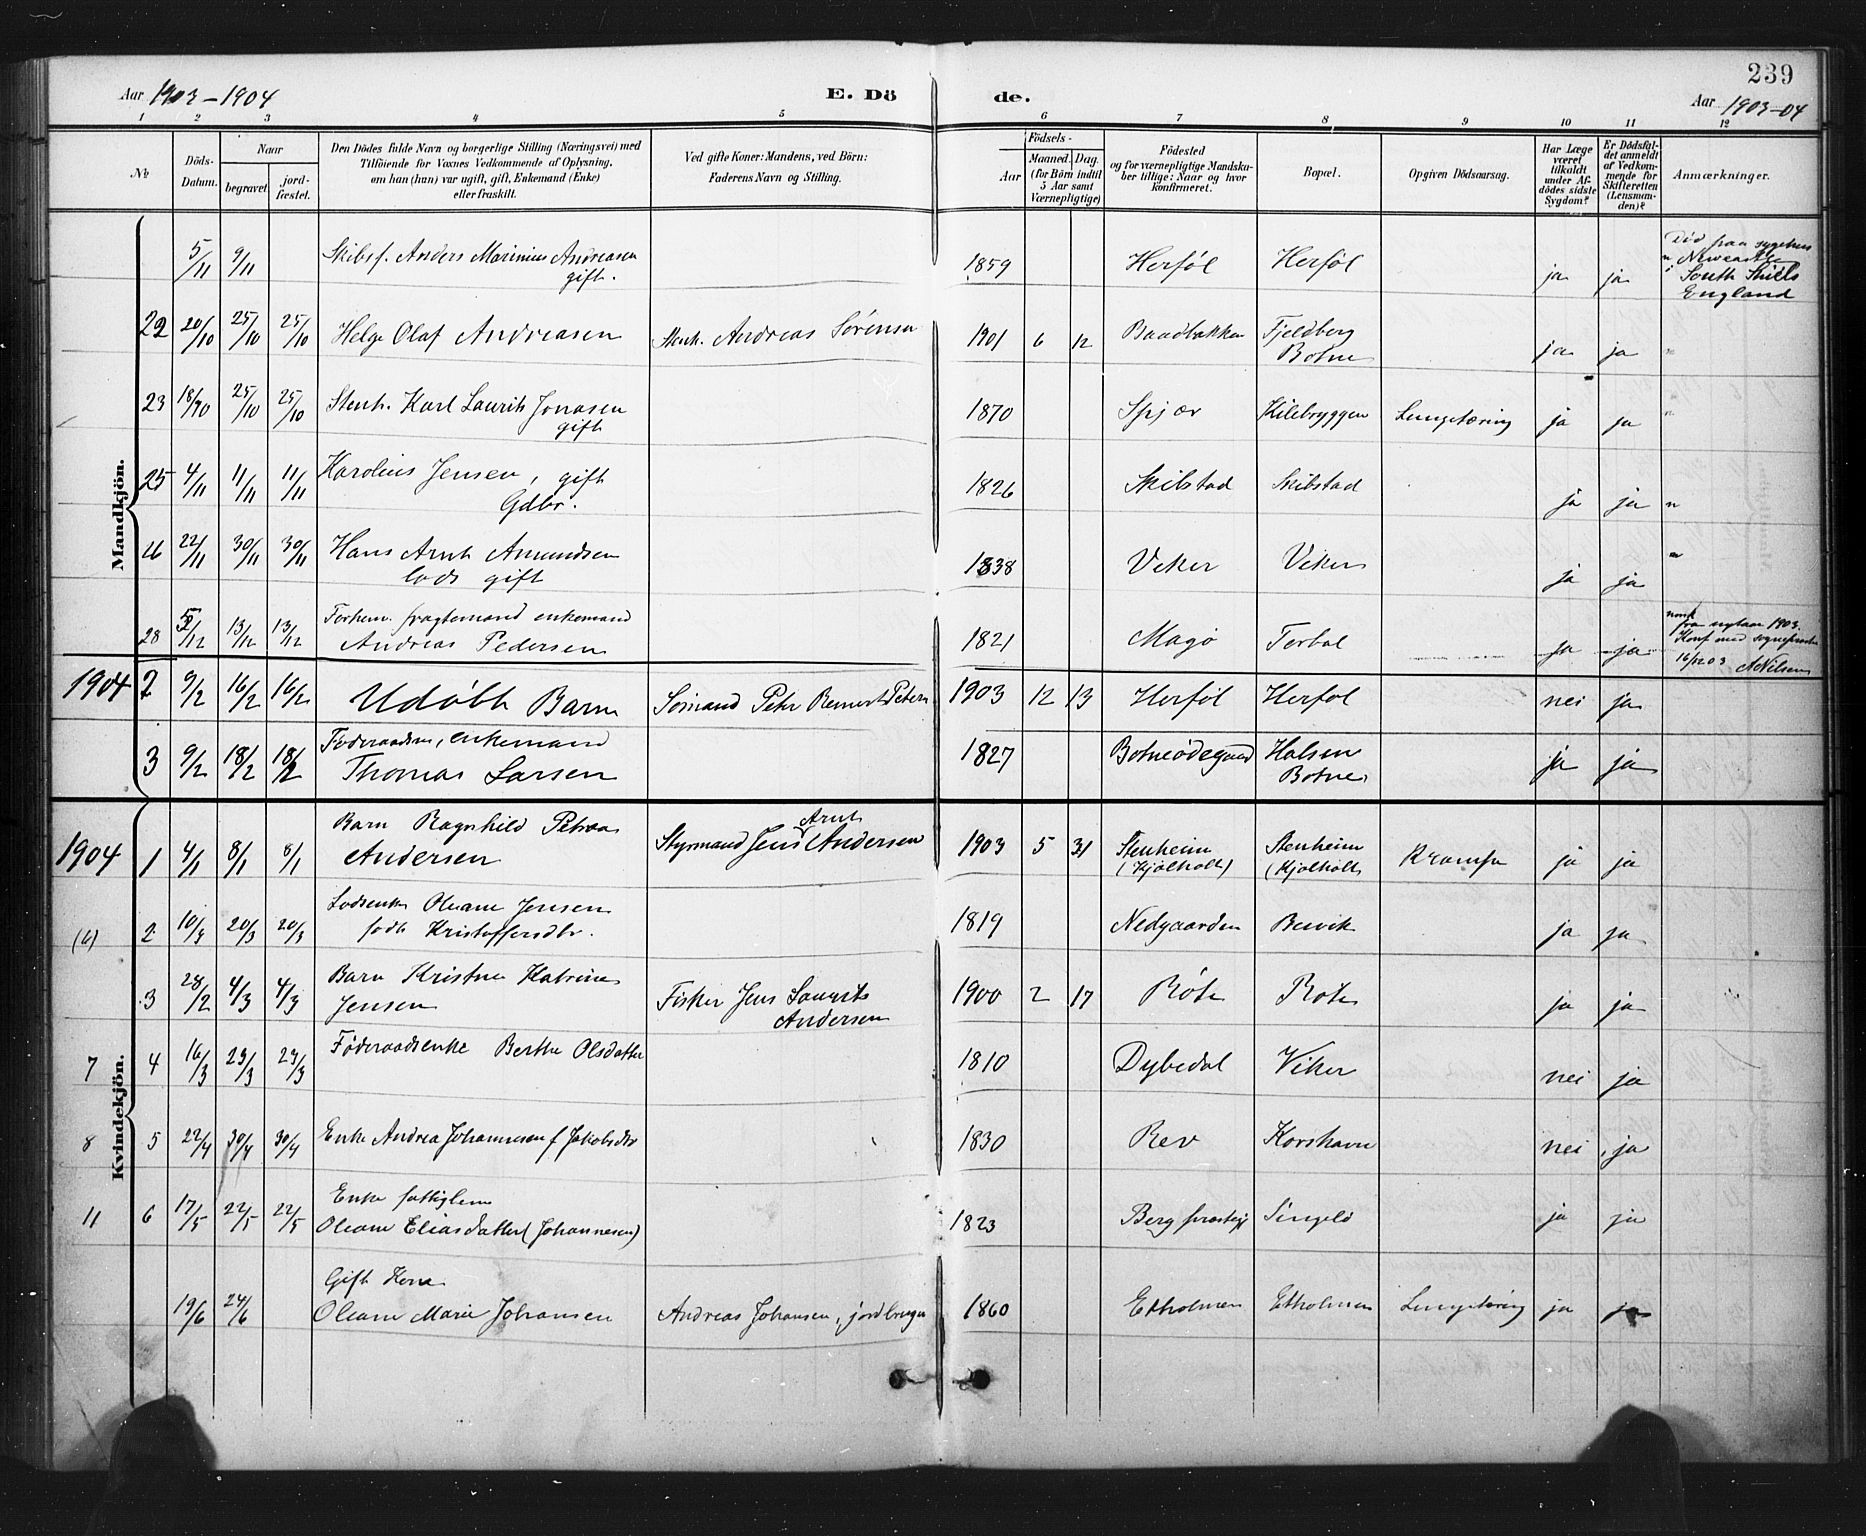 239
Aar 1903-1904 E. Dö de. Aar 1903-04
1 2 3 4 5 6 7 8 9 10 11 12
No
Döds-Datum.
Naar
begravet
jord-fæstet.
Den Dödes fulde Navn og borgerlige Stilling (Næringsvei) med
Tilföiende for Voxnes Vedkommende af Oplysning,
om han (hun) var ugift, gift, Enkemand (Enke)
eller fraskilt.
Ved gifte Koner: Mandens, ved Börn:
Faderens Navn og Stilling.
Födsels-
Aar
Maaned. Dag.
(for Börn indtil
5 Aar samt
Værnepligtige)
Födested
og for værnepligtige Mandska-
ber tillige: Naar og hvor
konfirmeret.
Bopæl.
Opgiven Dödsaarsag.
Har Læge
været
tilkaldt
under Af-
dödes sidste
Sygdom?
Er Dödsfal-
det anmeldt
af Vedkom-
mende for
Skifteretten
(Lensman-
den)?
Anmærkninger.
Mandkjön.
5/11 9/11 Skibsf. Anders Marinius Andreasen gift. 1859 Herføl Herføl ja ja
Newcastle
South Shiels
England
22 20/10 25/10 25/10 Helge Olaf Andreasen Stenh. Andreas Sørensen 1901 6 12 Baadbakken Fjeldberg Botne ja ja "
23 18/10 25/10 25/10 Stenh. Karl Laurits Jonasen gift 1870 Spjær Kilebryggen Lungetæring ja ja "
25 4/11 11/11 11/11 Karolius Jensen, gift Gdbr. 1826 Skibstad Skibstad ja ja "
26 22/11 30/11 30/11 Hans Arnt Amundsen lods gift 1838 Veker Veker ja ja "
28 5/12 13/12 13/12 Forhen. fragtemand enkemand
Andreas Pedersen 1821 Magø Torbal ja ja
fra nytaar 1903.
Konf med sogneprest
16/12 03 A Nilsen
1904 2 9/2 16/2 16/2 Udøbt Barn Sømand Petr Reinert Petersen 1903 12 13 Herføl Herføl nei ja
3 9/2 18/2 18/2 Føderaadsm, enkemand
Thomas Larsen 1827 Botneødegaard Halsen Botne ja ja
Kvindekjön.
1904 1 4/1 8/1 8/1 Barn Ragnhild Petrea
Andersen Styrmand Jens Arnt Andersen 1903 5 31 Stenheim (Kjølholt) Stenheim (Kjølholt Krampe ja ja
(6) 2 10/3 20/3 20/3 Lodsenke Oleane Jensen
født Kristoffersdtr. 1819 Nedgaarden Bervik ja ja
3 28/2 4/3 4/3 Barn Kristne Katrine
Jensen Fisker Jens Laurits Andersen 1900 2 17 Røte Røte ja ja
7 4 16/3 23/3 23/3 Føderaadsenke Berthe Olsdatter 1810 Dybedal Viker nei ja
8 5 22/4 30/4 30/4 Enke Andrea Johannesen f Jakobsdtr 1830 Rev Korshavn nei ja
11 6 17/5 22/5 22/5 Enke fattiglem
Oleane Eliasdatter (Johannesen) 1823 Berg Singelø ja ja
19/6 24/6 Gift Kone
Oleane Marie Johansen Andreas Johansen, jordbruger 1860 Etholmen Etholmen Lungetæring ja ja